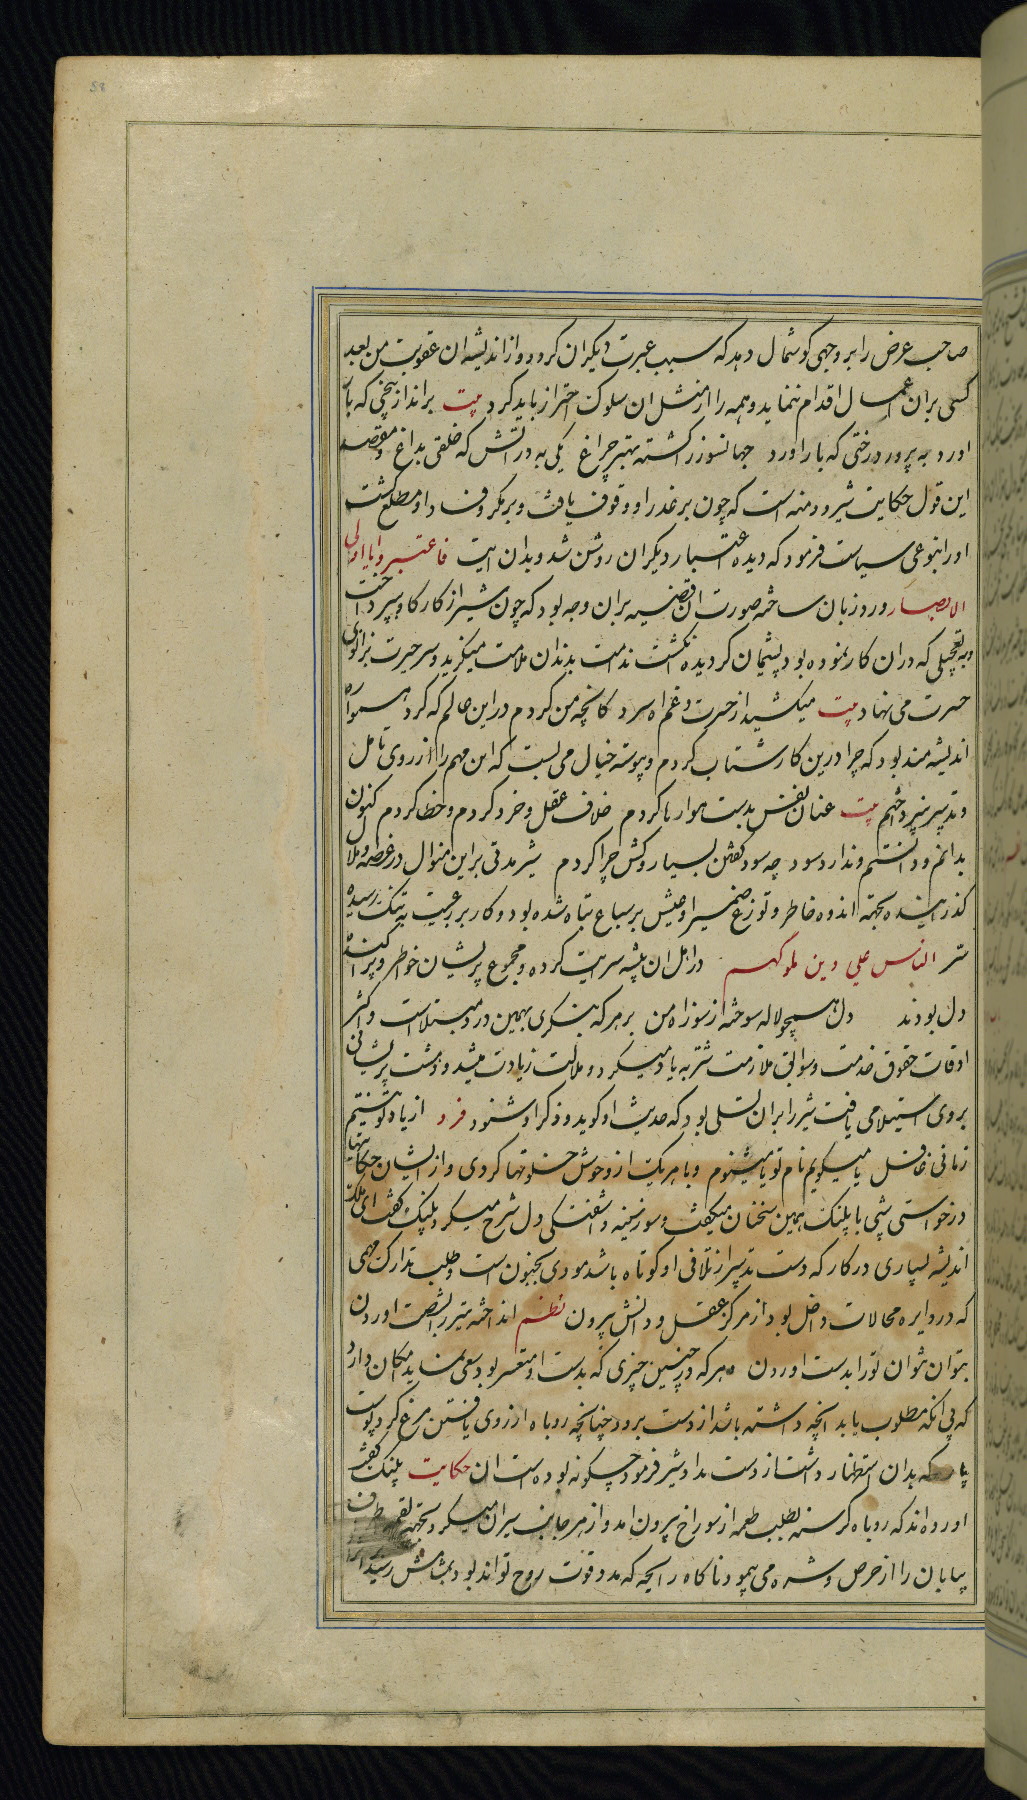 صاحب عرض را بر وجهی کوشمال دهد که سبب عبرت دیکران کردد و از اندیشه ان عقوبت من بعد
کسی بران اعمال اقدام ننماید و همه را از مثل ان سلوک احتراز باید کرد بیت براندازبیخی که بار
اورد به پرور درختی که بار اورد جهانسوز را کشته بهتر چراغ یکی به در اتش که خلقی بداغ و مقصد
این قول حکایت شیر و دمنه است که چون بر غدر او وقوف یافت و بر مکر و فساد او مطلع کشت
او را بنوعی سیاست فرمود که دیده اعتبار دیکران روشن شد و بدان ایت فاعتبروا یا اولی
الابصار ورد زبان ساخته صورت ان قضیه بران وجه بود که چون شیر از کار کاو بپرداخت
و به تعجیلی که دران کار نموده بود پشیمان کردیده انکشت ندامت بدندان ملامت میکزید و سر حیرت بزانوی
حسرت می نهاد بیت میکشید از حسرت و غم اه سرد کانچه من کردم در این عالم که کرد همواره
اندیشه مند بود که چرا درین کار شتاب کردم و پیوسته خیال می بست که این مهم را از روی تامل
و تدبیر نپرداختم بیت عنان نفس بدست هوا رها کردم خلاف عقل و خرد کردم و خطا کردم کنون
بدانم و دانستم و ندارد سود چه سود کفتن بسیار و کش چرا کردم شیر مدتی براین منوال در غصه و ملال
کذرانیده بجهته اندوه خاطر و توزع ضمیر او عیش بر سباع تباه شده بود و کار بر رعیت به تنک رسیده
سر الناس علی دین ملوکهم در اهل ان بیشه سرایت کرده و مجموع پریشان خواطر و پراکنده
دل بودند دل همچو لاله سوخته از سوز اه من بر هر که بنکری بهمین درد مبتلاست و اکثر
اوقات حقوق خدمت و سوابق ملازمت شنزبه یاد میکرد و ملالت زیادت میشد و وحشت پریشانی
بروی استیلا می یافت شیر را بران تسلی بود که حدیث او کوید و ذکر او شنود فرد از یاد تو نیستم
زمانی غافل یا میکویم نام تو یا میشنوم و با هر یک از وحوش خلوتها کردی و از ایشان حکایتها
درخواستی شبی با پلنک همین سخنان میکفت و سوز سینه و اشفتکی دل شرح میکرد پلنک کفت ای ملک
اندیشه بسیاری در کار که دست تدبیر از تلافی او کوتاه باشد مودی بجنون است و طلب تدارک مهمی
که در دایره محالات داخل بود از مرکز عقل و دانش بیرون نظم انداخته تیر را بشصت اوردن
بتوان نتوان تو را بدست اوردن و هر که در چنین چیزی که بدست او متعسر بود سعی نماید امکان دارد
که بی انکه مطلوب یابد انچه داشته باشد از دست برود چنانچه روباه ارزوی یافتن مرغ کرد پوست
پاره که بدان استظهار داشت از دست بداد شیر فرمود چکونه بوده است ان حکایت پلنک کفت
اورده اند که روباه کرسنه بطلب طعمه از سوراخ بیرون امد و از هر جانب سیران میکرد بجهته لقمه طرف
بیابان را از حرص و شره می پیمود ناکاه رایحه که مدد قوت روح تواند بود بمشامش رسید